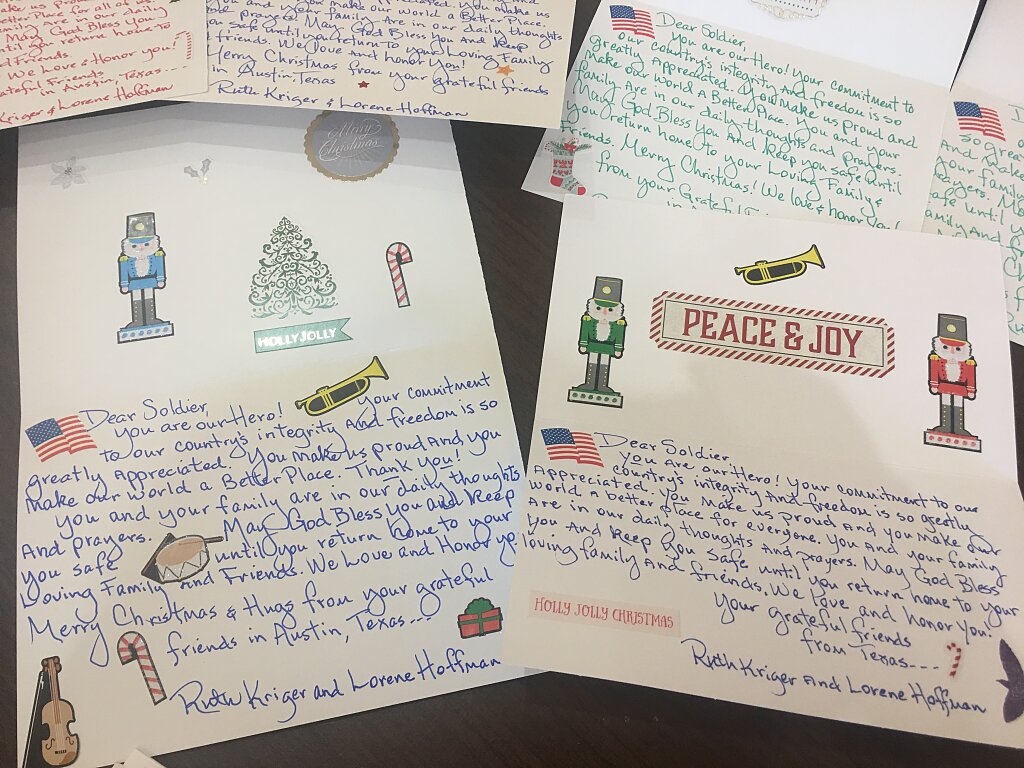 Place for all of us.
are in our daily
May God Bless you
until you return home
Friends.
We love & Honor you!
grateful friends
in Austin, Texas ---
Kriger & Lorene Hoffman
you make our world a Better Place.
prayers! May God Bless You and Keep
you safe until you return to your Loving Family
& friends. We love and honor you!
Merry Christmas from your grateful friends
in Austin, Texas
Ruth Kriger & Lorene Hoffman
Dear Soldier,
You are our Hero! Your commitment to
our country's integrity and freedom is so
greatly Appreciated. You make us proud and
make our world a Better Place. You and your
family Are in our daily thoughts and prayers.
May God Bless You And Keep you safe until
you return home to your Loving Family &
friends. Merry Christmas! We love & honor you!
from your Grateful
so great
And make
your family
prayers. May
safe until
family And
Merry Christmas
HOLLY JOLLY
Dear Soldier,
You are our Hero! Your commitment
to our country's integrity And freedom is so
greatly Appreciated. You make us proud And you
make our world a Better Place. Thank You!
You and your family are in our daily thoughts
And prayers. May God Bless you and Keep
you safe until you return home to your
Loving Family And Friends. We Love and Honor yo
Merry Christmas & Hugs from your grateful
friends in Austin, Texas ---
Ruth Kriger and Lorene Hoffman
PEACE & JOY
Dear Soldier,
You Are our Hero! Your commitment to our
country's integrity And freedom is so greatly
Appreciated. You make us proud And you make our
world a better place for everyone. You And your family
Are in our daily thoughts And prayers. May God Bless
you And Keep You safe until you return home to your
loving family And friends. We love and honor you!
Your grateful friends
from Texas ---
HOLLY JOLLY CHRISTMAS
Ruth Kriger And Lorene Hoffman